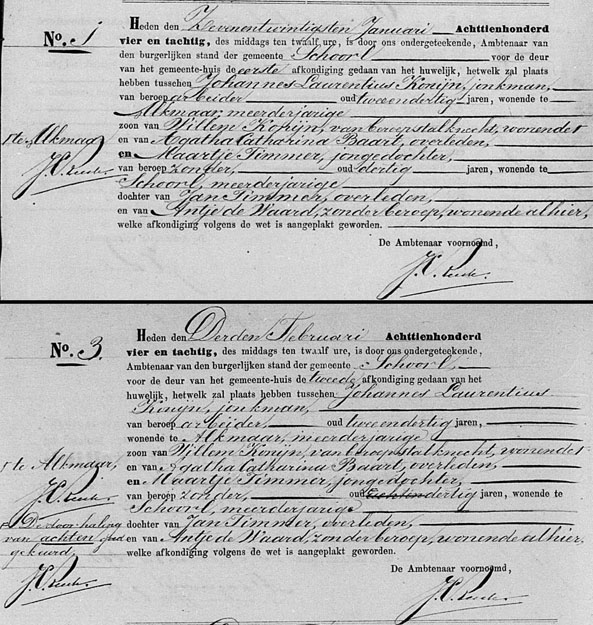 No. 1
Heden den Zevenentwintigsten Januari Achttienhonderd
vier en tachtig, des middags ten twaalf ure, is door ons ondergeteekende, Ambtenaar van
den burgerlijken stand der gemeente Schoorl voor de deur
van het gemeente-huis de eerste afkondiging gedaan van het huwelijk, hetwelk zal plaats
hebben tusschen Johannes Laurentius Konijn, jonkman,
van beroep arbeider oud tweeendertig jaren, wonende te
Alkmaar, meerderjarige
zoon van Willem Konijn, van beroep stalknecht, wonende 1
en van Agatha Catharina Baart, overleden,
1 te Alkmaar
en Maartje Timmer, jongedochter,
van beroep zonder, oud dertig jaren, wonende te
Schoorl, meerderjarige
dochter van Jan Timmer, overleden,
en van Antje de Waard, zonder beroep, wonende alhier,
welke afkondiging volgens de wet is aangeplakt geworden.
De Ambtenaar voornoemd,
No. 3.
Heden den Derden Februari Achttienhonderd
vier en tachtig, des middags ten twaalf ure, is door ons ondergeteekende,
Ambtenaar van den burgerlijken stand der gemeente Schoorl,
voor de deur van het gemeente-huis de tweede afkondiging gedaan van het
huwelijk, hetwelk zal plaats hebben tusschen Johannes Laurentius
Konijn, jonkman,
van beroep arbeider, oud tweeendertig jaren,
wonende te Alkmaar, meerderjarige
zoon van Willem Konijn, van beroep stalknecht, wonende 1
1 te Alkmaar,
en van Agatha Catharina Baart, overleden,
en Maartje Timmer, jongedochter,
van beroep zonder, oud achtendertig jaren, wonende te
Schoorl, meerderjarige
De doorhaling
dochter van Jan Timmer, overleden,
van achten goed
en van Antje de Waard, zonder beroep, wonende alhier,
gekeurd
welke afkondiging volgens de wet is aangeplakt geworden.
De Ambtenaar voornoemd,